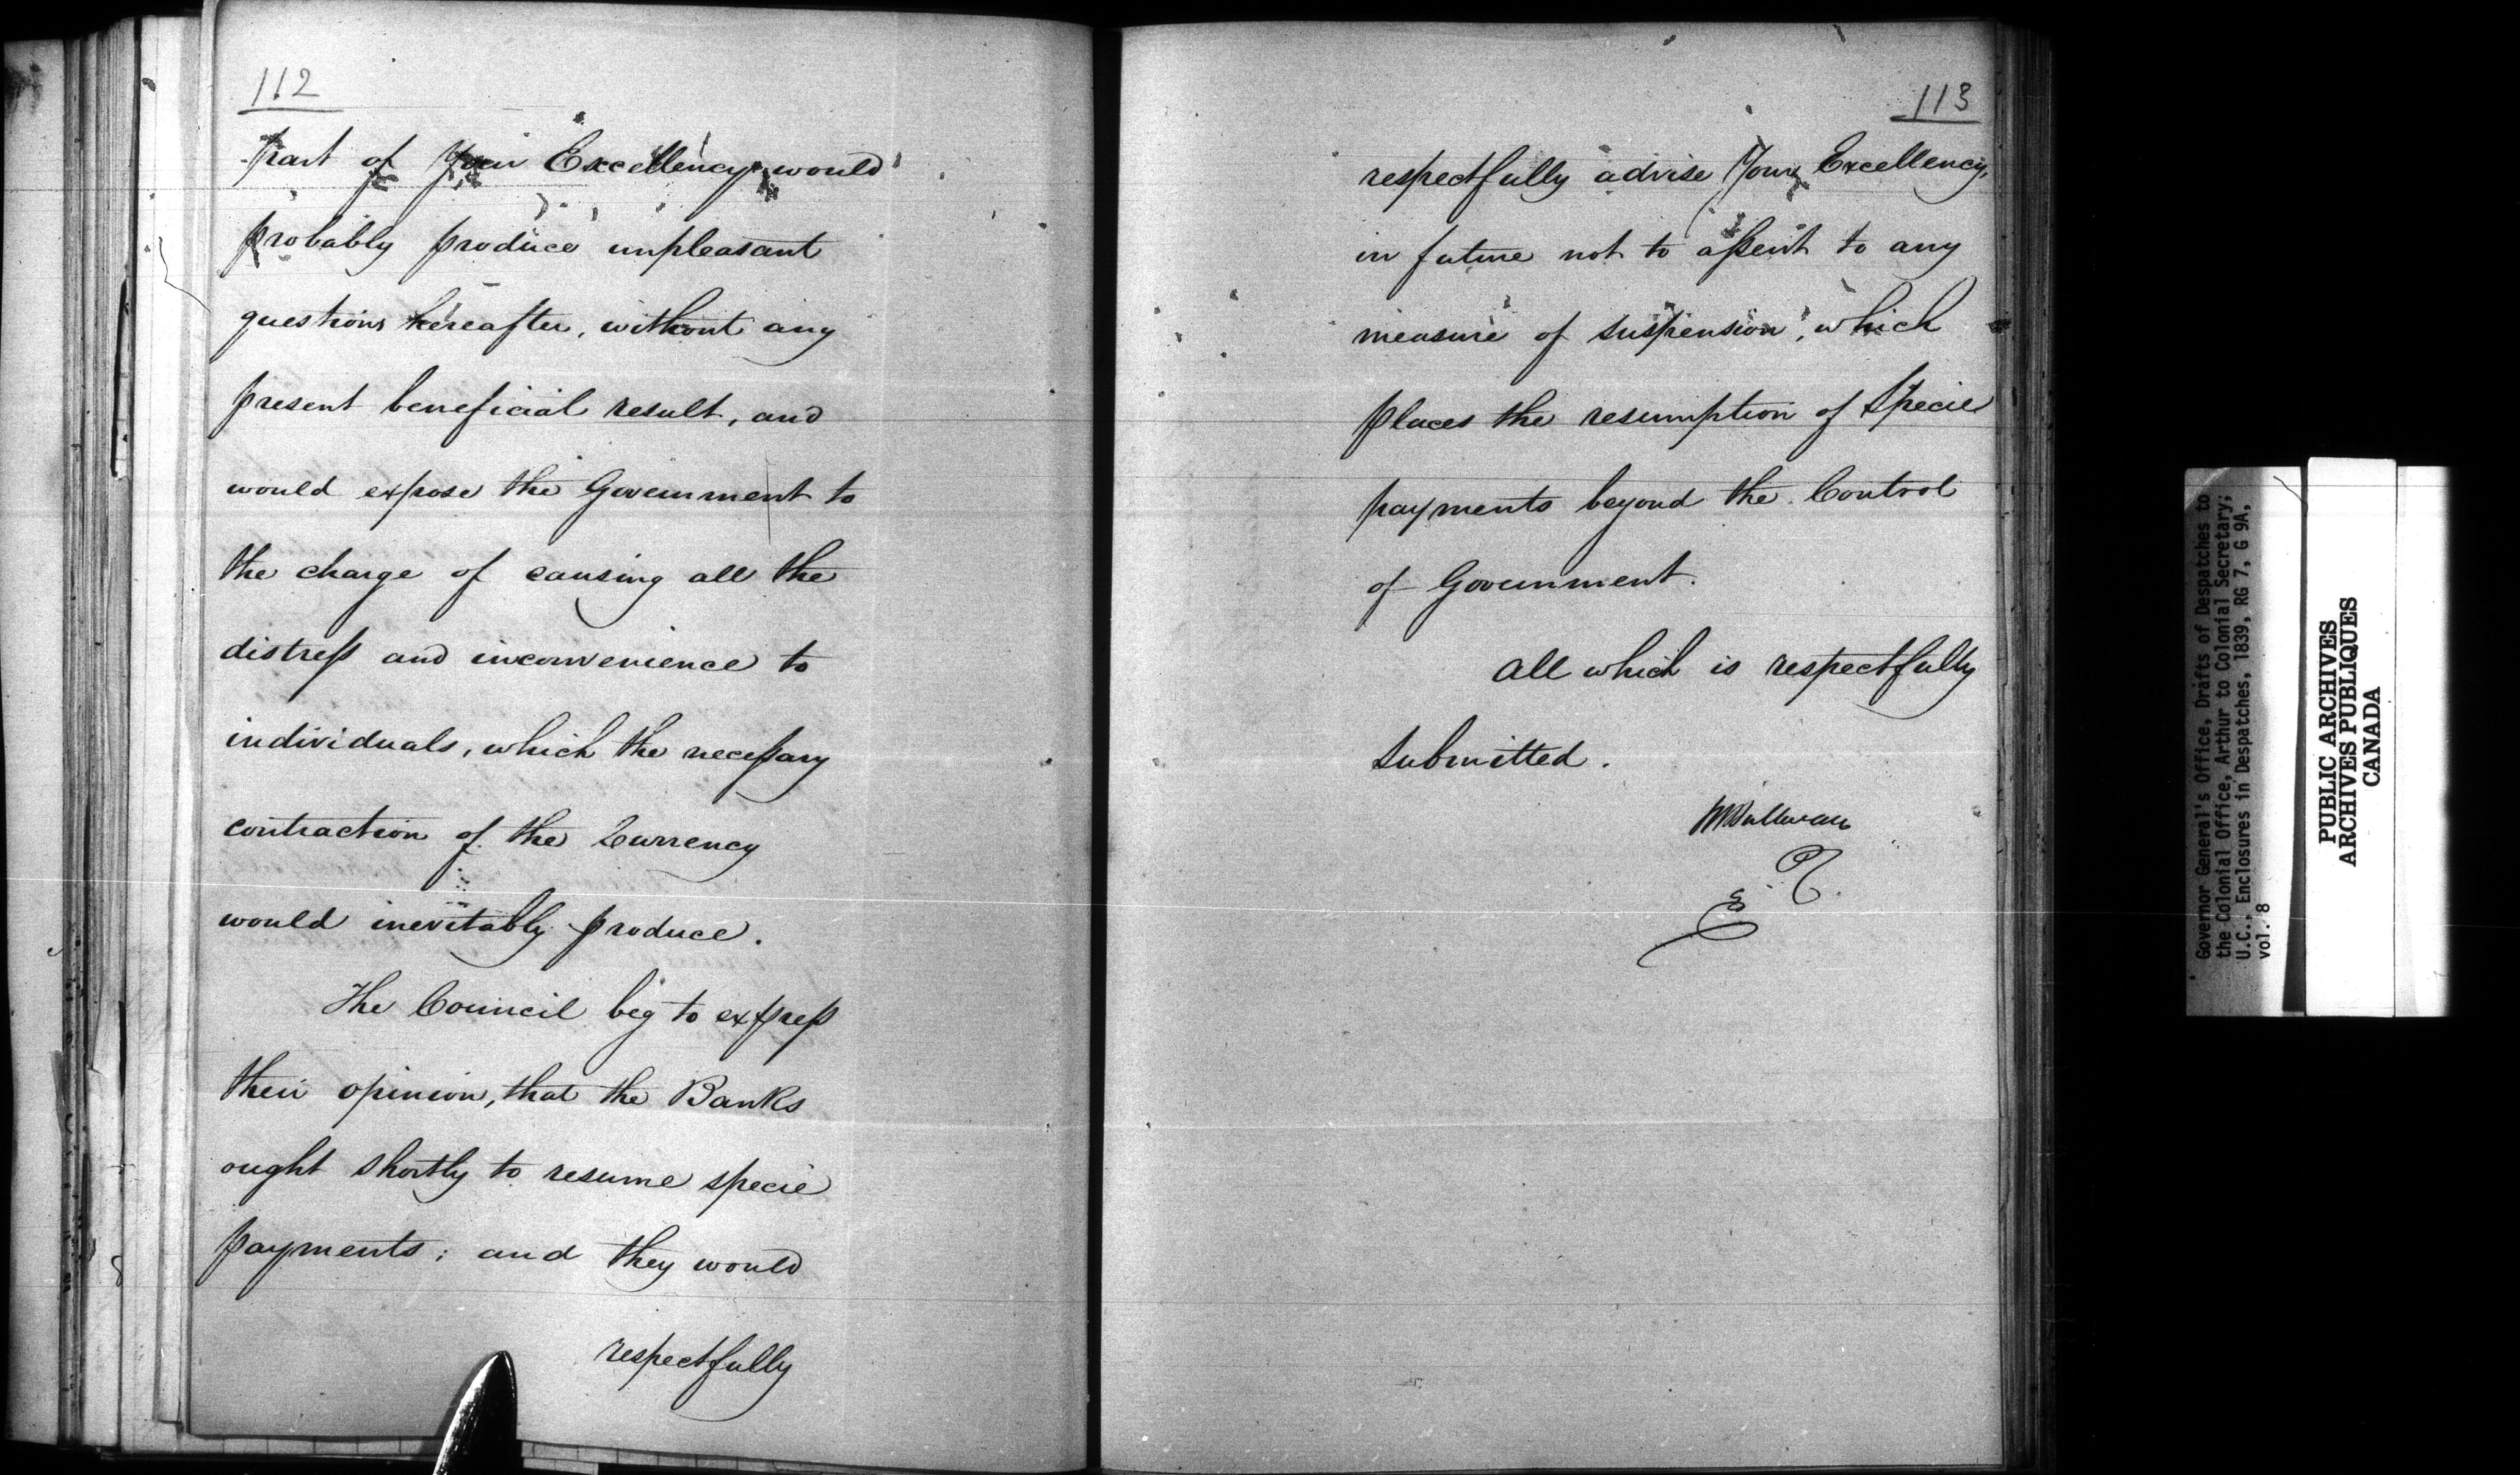 112
part of Your Excellency would
probably produce unpleasant
questions hereafter, without any
present beneficial result, and
would expose the Government to
the charge of causing all the
distreſs and inconvenience to
individuals, which the neceſsary
contraction of the Currency
would inevitably produce.
The Council beg to expreſs
their opinion, that the Banks
ought shortly to resume specie
payments; and they would
respectfully
113
respectfully advise Your Excellency,
in future not to aſsent to any
measure of suspension, which
places the resumption of Specie
payments beyond the Control
of Government.
All which is respectfully
submitted.
Governor General's Office, Drafts of Despatches to
the Colonial Office, Arthur to Colonial Secretary;
U.C., Enclosures in Despatches, 1839, RG 7, G 9A,
vol. 8
PUBLIC ARCHIVES
ARCHIVES PUBLIQUES
CANADA